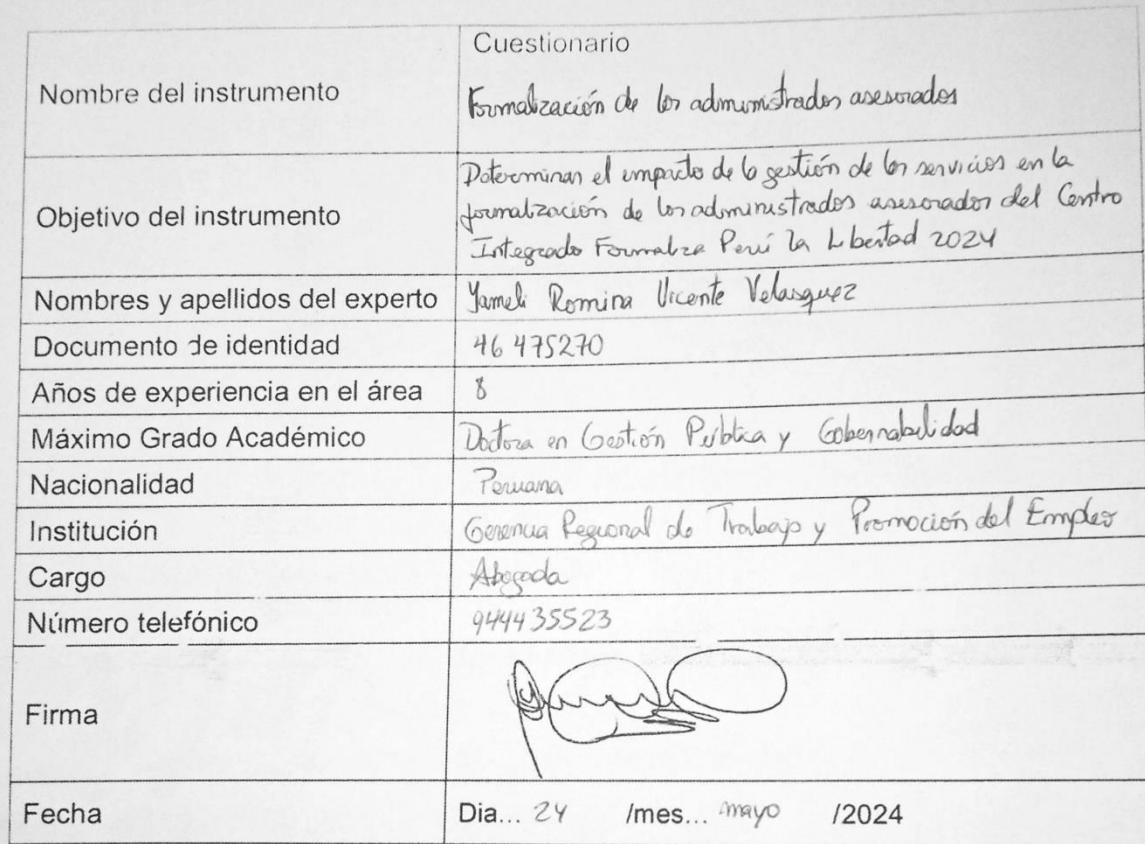 Cuestionario
Nombre del instrumento
Formalización de los administrados asesorados
Objetivo del instrumento
Determinar el impacto de la gestión de los servicios en la
formalización de los administrados asesorados del Centro
Integrado Formaliza Perú La Libertad 2024
Nombres y apellidos del experto Yameli Romina Vicente Velasquez
Documento de identidad 46475270
Años de experiencia en el área 8
Máximo Grado Académico Doctora en Gestión Pública y Gobernabilidad
Nacionalidad Peruana
Institución Gerencia Regional de Trabajo y Promoción del Empleo
Cargo Abogada
Número telefónico 944435523
Firma
Fecha Dia... 24 /mes... mayo /2024